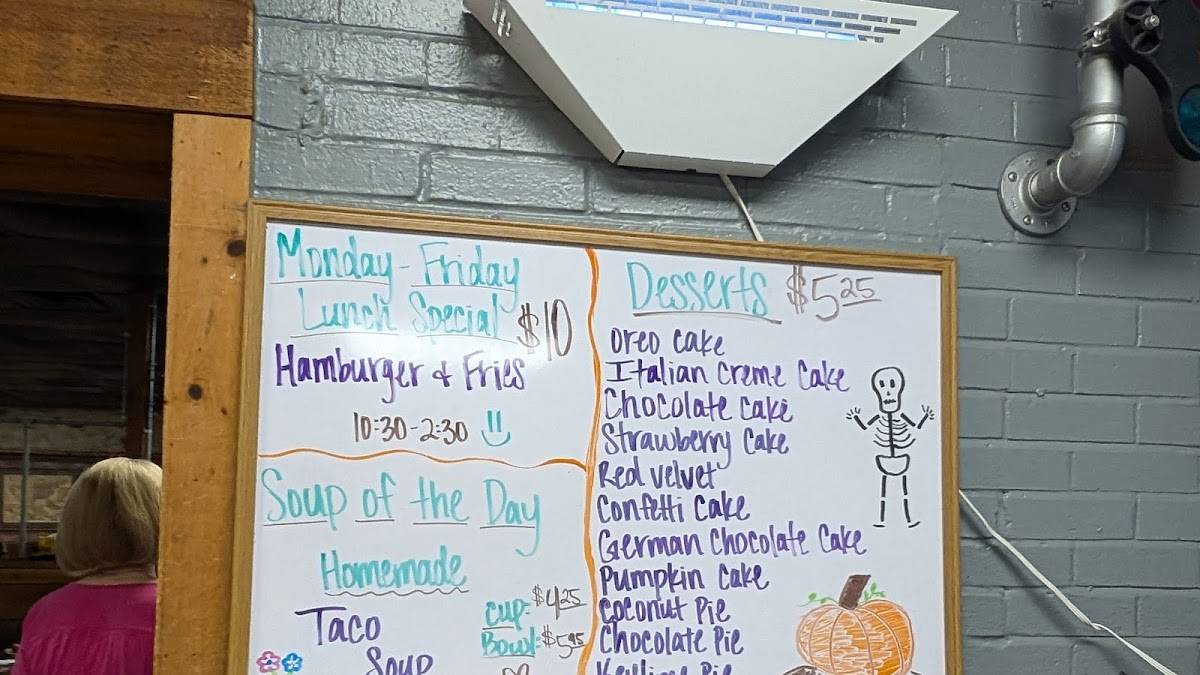 Monday - Friday
Lunch Special $10
Hamburger & Fries
10:30-2:30
Soup of the Day
Homemade
Taco
Soup
Cup: $4.25
Bowl: $5.95
Desserts $5.25
Oreo Cake
Italian Creme Cake
Chocolate Cake
Strawberry Cake
Red Velvet
Confetti Cake
German Chocolate Cake
Pumpkin Cake
Coconut Pie
Chocolate Pie
Keylime Pie